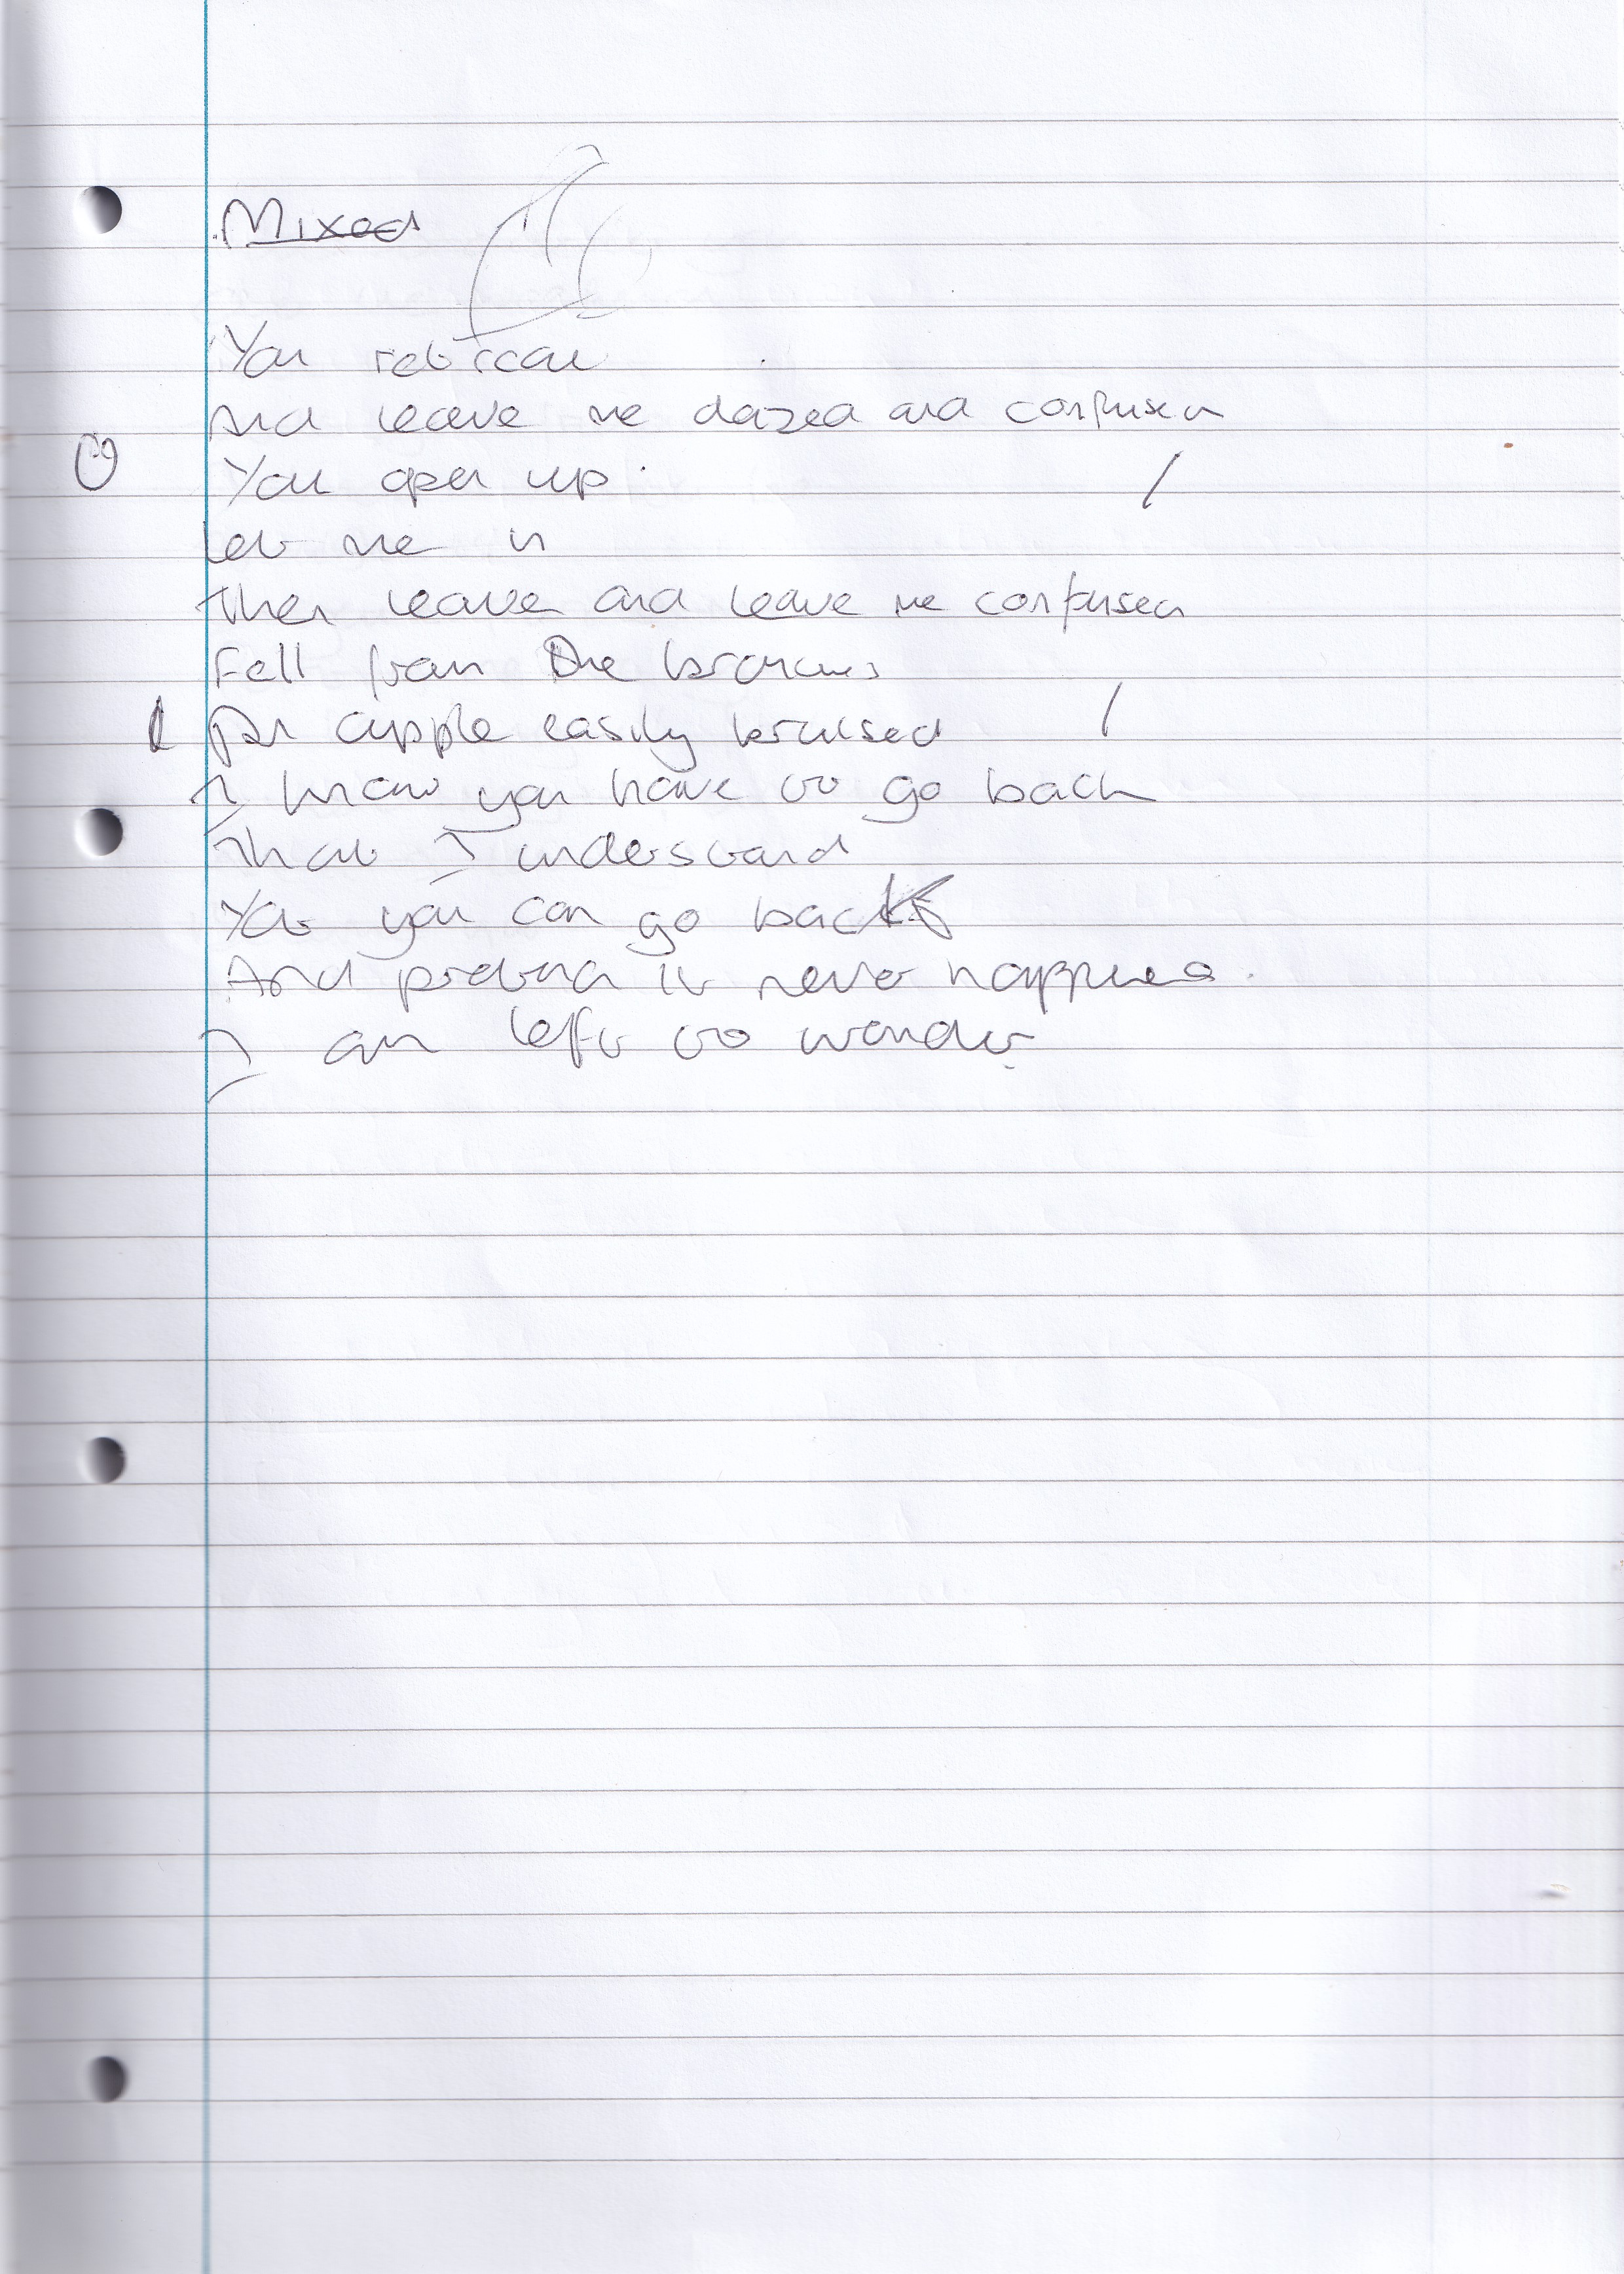 Mixed
You retreat
And leave me dazed and confused
You open up
Let me in
Then leave and leave me confused
Fell from the branches
An apple easily bruised
I know you have to go back
That I understand
Yet you can go back
And pretend it never happened.
I am left to wonder